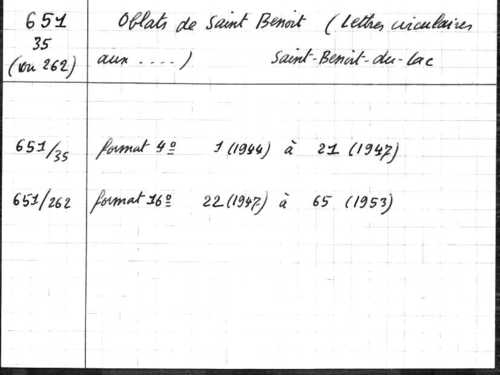 651 Oblats de Saint Benoit (Lettres circulaires
35
(ou 262) aux ....) Saint-Benoit-du-Lac
651/35 format 4º 1 (1944) à 21 (1947)
651/262 format 16º 22 (1947) à 65 (1953)